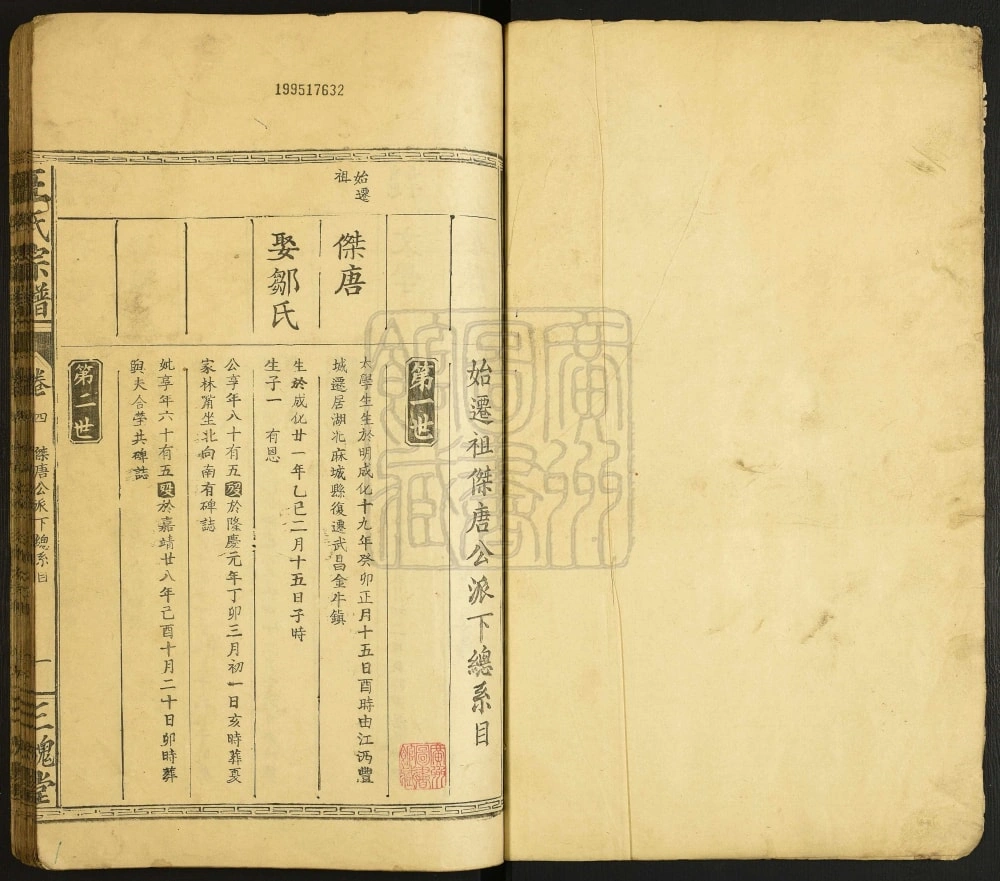 199517632
始遷祖傑唐公派下總系目
第一世
始遷
祖
傑唐
太學生生於明成化十九年癸卯正月十五日酉時由江西豐
城遷居湖北麻城縣復遷武昌金牛鎮
娶鄒氏
生於成化廿一年乙巳二月十五日子時
生子一 有恩
公享年八十有五歿於隆慶元年丁卯三月初一日亥時葬夏
家林嘴坐北向南有碑誌
妣享年六十有五歿於嘉靖廿八年己酉十月二十日卯時葬
與夫合塋共碑誌
第二世
王氏宗譜
卷四 傑唐公派下總系目
一
三槐堂
廣州圖書館藏